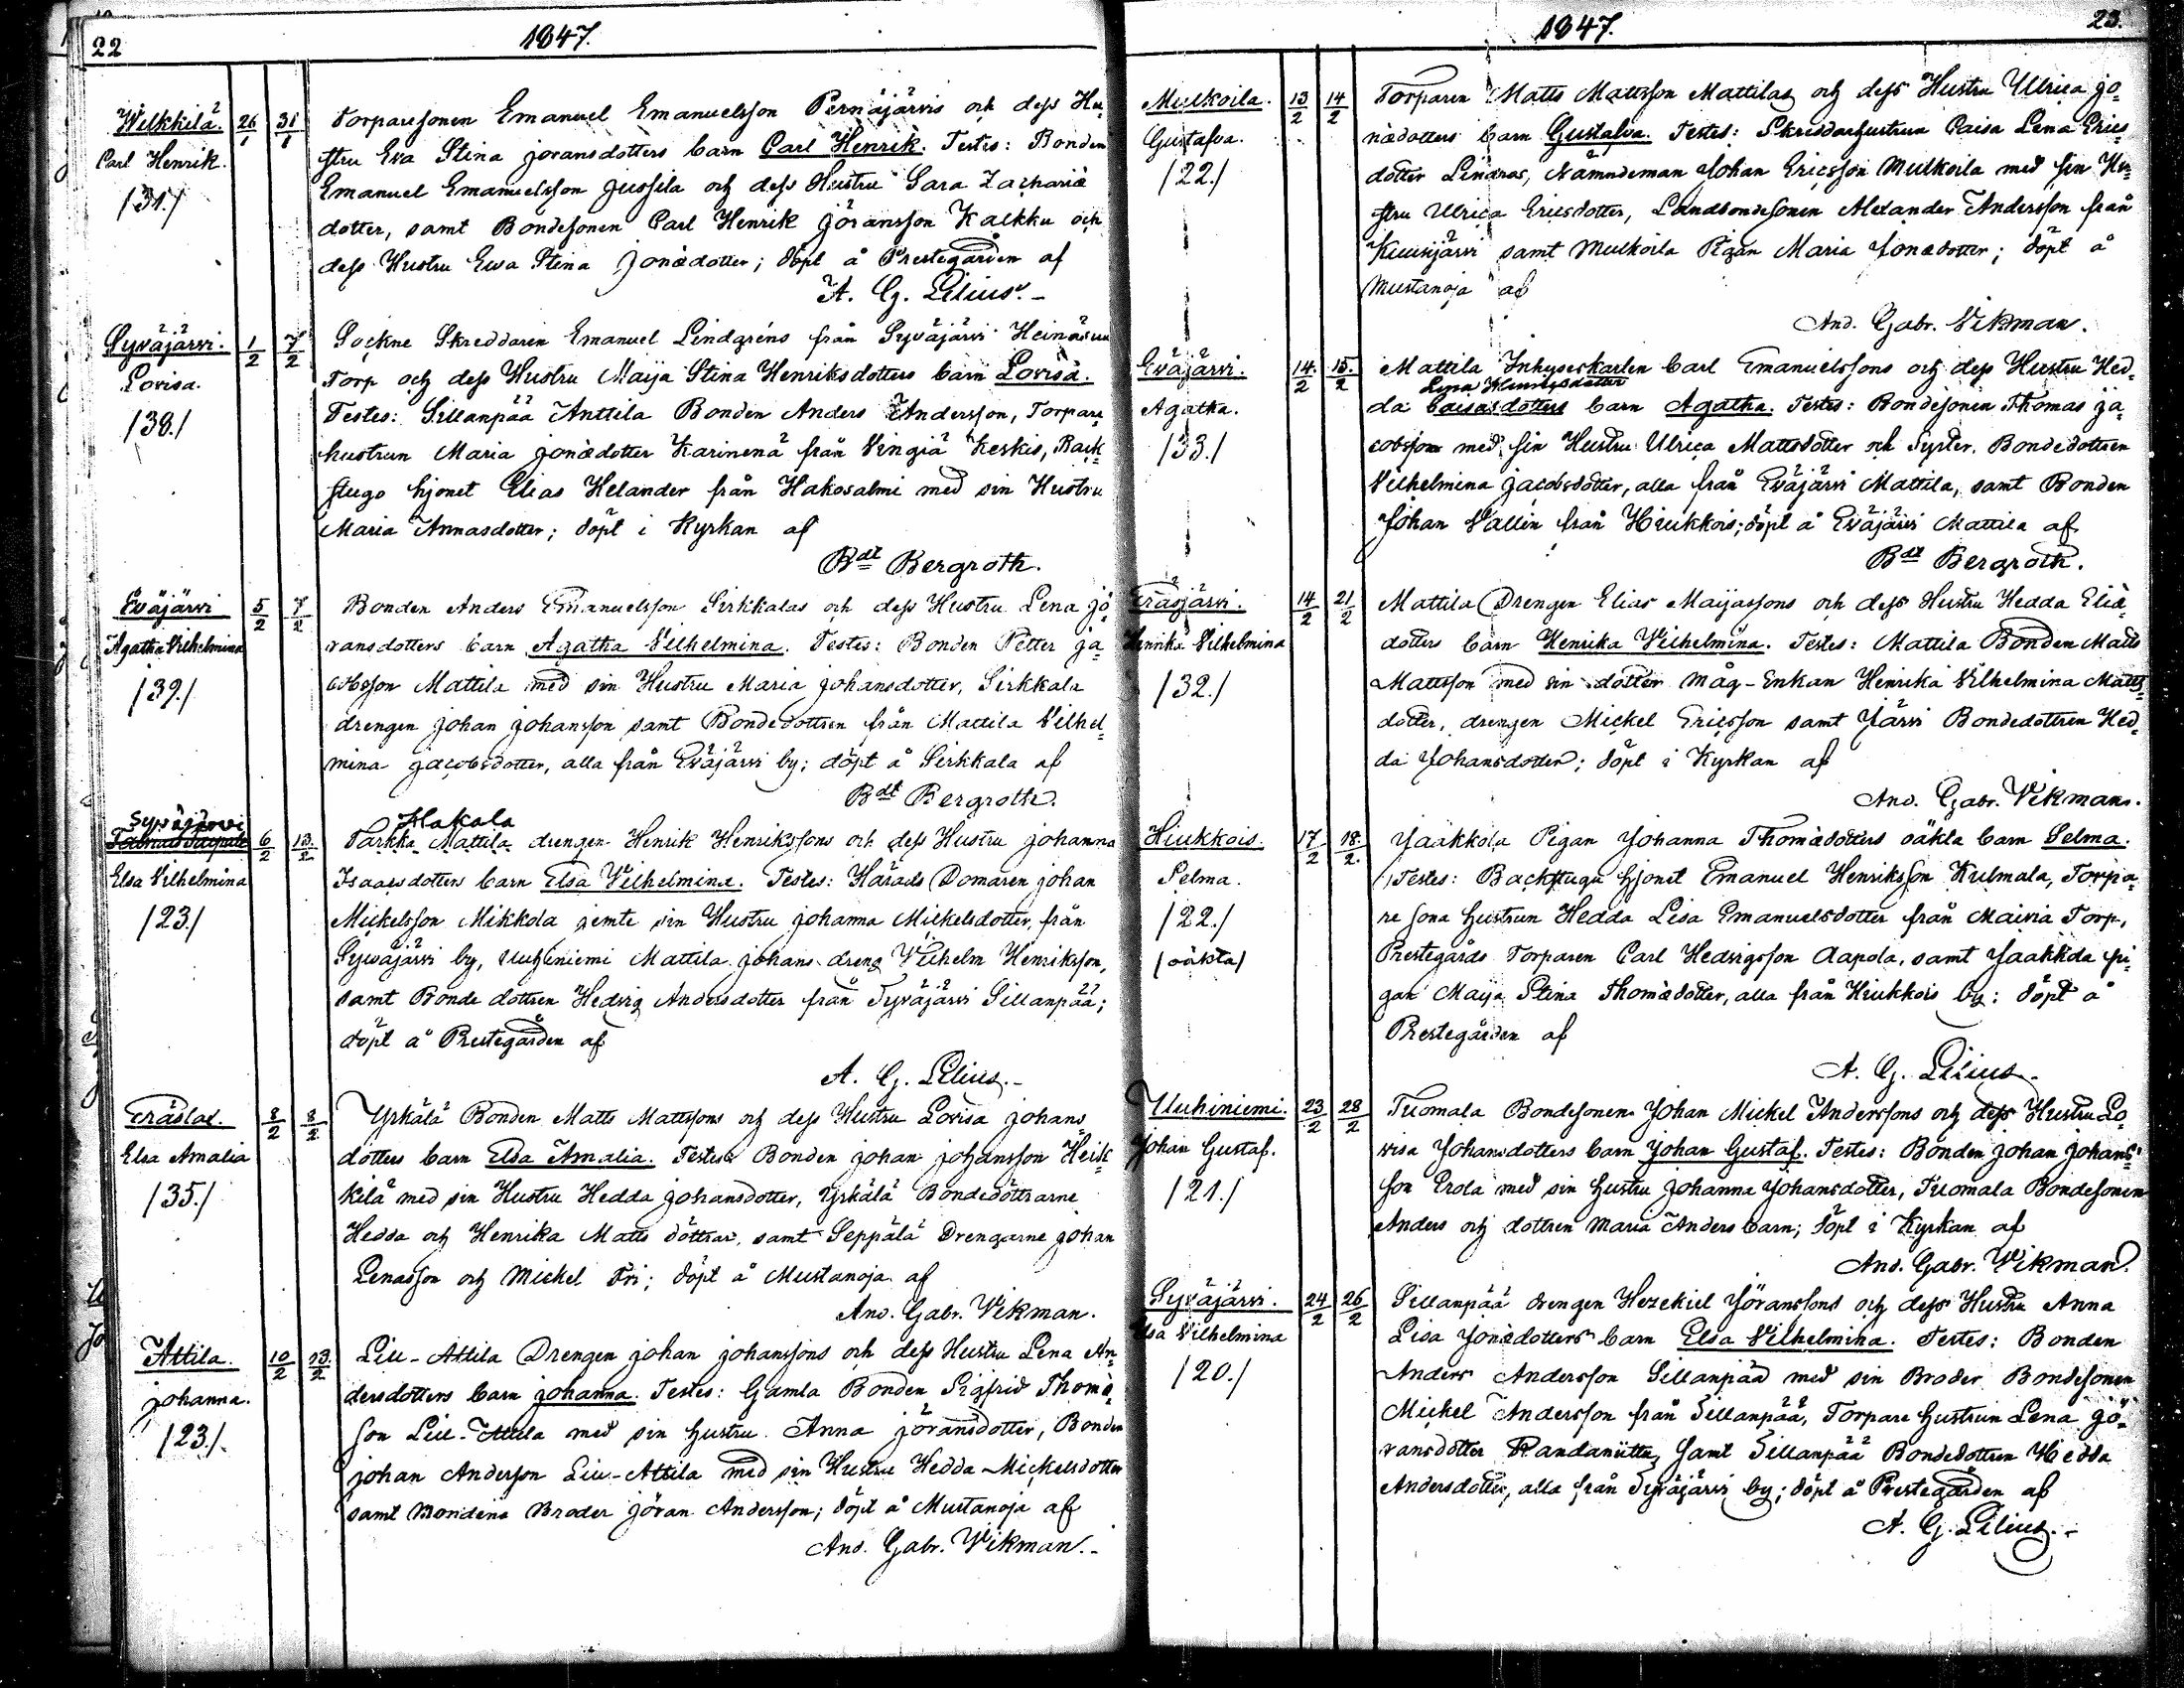 22
1847.
Wilkkilä. 26/1 31/1 Torparesonen Emanuel Emanuelsson Pernäjärvis och dess Hu-
Carl Henrik. stru Eva Stina Jöransdotters barn Carl Henrik. Testes: Bonden
/31./ Emanuel Emanuelsson Jussila och dess Hustru Sara Zachariæ
dotter, samt Bondesonen Carl Henrik Jöransson Kalkku och
dess Hustru Ewa Stina Jonædotter; döpt å Prestegården af
A. G. Lilius.-
Syväjärvi. 1/2 7/2 Sockne Skreddaren Emanuel Lindgréns från Syväjärvi Heinäsuu
Lovisa. Torp och dess Hustru Maija Stina Henriksdotters barn Lovisa.
/38./ Testes: Sillanpää Anttila Bonden Anders Andersson, Torpare
hustrun Maria Jonædotter Karinena från Vingiä Keskis, Back-
stugo hjonet Elias Helander från Hakosalmi med sin Hustru
Maria Annasdotter; döpt i Kyrkan af
Bdt Bergroth.
Eväjärvi 5/2 7/2 Bonden Anders Emanuelsson Sirkkalas och dess Hustru Lena Jö-
Agatha Vilhelmina ransdotters barn Agatha Vilhelmina. Testes: Bonden Petter Ja-
/39./ cobsson Mattila med sin Hustru Maria Johansdotter, Sirkkala
drengen Johan Johansson samt Bondedottren från Mattila Vilhel-
mina Jacobsdotter, alla från Eväjärvi by; döpt å Sirkkala af
Bdt Bergroth.
Syväjärvi Hakala
6/2 13/2 Parkka Mattila drengen Henrik Henrikssons och dess Hustru Johanna
Elsa Vilhelmina Isaacsdotters barn Elsa Vilhelmina. Testes: Härads Domaren Johan
/23./ Mickelsson Mikkola jemte sin Hustru Johanna Mickelsdotter, från
Syväjärvi by, Uuhiniemi Mattila Johans dreng Vilhelm Henriksson,
samt Bonde dottren Hedvig Andersdotter från Syväjärvi Sillanpää;
döpt å Prestegården af
A. G. Lilius.-
Eräslax. 8/2 8/2 Yrkälä Bonden Matts Mattssons och dess Hustru Lovisa Johans-
Elsa Amalia dotters barn Elsa Amalia. Testes: Bonden Johan Johansson Heik-
/35./ kilä med sin Hustru Hedda Johansdotter, Yrkälä Bondedöttrarne
Hedda och Henrika Matts döttrar, samt Seppälä Drengarne Johan
Lenasson och Mickel Fri; döpt å Mustanoja af
And. Gabr. Wikman.
Attila. 10/2 13/2 Liu-Attila Drengen Johan Johanssons och dess Hustru Lena An-
Johanna. dersdotters barn Johanna. Testes: Gamla Bonden Sigfrid Thomæ
/23./ son Liu-Attila med sin hustru Anna Jöransdotter, Bonden
Johan Andersson Liu-Attila med sin Hustru Hedda Mickelsdotter
samt Bondens Broder Jöran Andersson; döpt å Mustanoja af
And. Gabr. Wikman.-
1847.
23.
Mulkoila. 13/2 14/2 Torparen Matts Mattsson Mattilas och dess Hustru Ulrica Jo-
Gustafva. nædotters barn Gustafva. Testes: Skreddarhustrun Caisa Lena Erics-
/22./ dotter Lindros, Nämndeman Johan Ericsson Mulkoila med sin Hu-
stru Ulrica Ericsdotter, Landbondesonen Alexander Andersson från
Kuusjärvi samt Mulkoila Pigan Maria Jonædotter; döpt å
Mustanoja af
And. Gabr. Vikman.
Eväjärvi. 14/2 15/2 Mattila Inhyseskarlen Carl Emanuelssons och dess Hustru Hed-
Agatha. da Caisasdotters barn Agatha. Testes: Bondesonen Thomas Ja-
/33./ cobsson med sin Hustru Ulrica Mattsdotter och Syster, Bondedottren
Vilhelmina Jacobsdotter, alla från Eväjärvi Mattila, samt Bonden
Johan Vallin från Hiukkois; döpt å Eväjärvi Mattila af
Bdt Bergroth.
Eräsjärvi. 14/2 21/2 Mattila Drengen Elias Maijassons och dess Hustru Hedda Eliæ
Henrika Vilhelmina dotters barn Henrika Vilhelmina. Testes: Mattila Bonden Matts
/32./ Mattsson med sin dotter Måg-Enkan Henrika Vilhelmina Matts-
dotter, drengen Mickel Ericsson samt Järvi Bondedottren Hed-
da Johansdotter; döpt i Kyrkan af
And. Gabr. Vikman.
Hiukkois. 17/2 18/2 Jaakkola Pigan Johanna Thomædotters oäkta barn Selma.
Selma. Testes: Backstugu hjonet Emanuel Henriksson Kulmala, Torpa-
/22./ re sona hustrun Hedda Lisa Emanuelsdotter från Maivia Torp,
/oäkta/ Prestegårds Torparen Carl Hedvigsson Aapola, samt Jaakkola pi-
gan Maija Stina Thomædotter, alla från Hiukkois by; döpt å
Prestegården af
A. G. Lilius.
Uuhiniemi. 23/2 28/2 Tuomala Bondesonen Johan Mickel Anderssons och dess Hustru Lo-
Johan Gustaf. visa Johansdotters barn Johan Gustaf. Testes: Bonden Johan Johans-
/21./ son Erola med sin hustru Johanna Johansdotter, Tuomala Bondesonen
Anders och dottren Maria Anders barn; döpt i Kyrkan af
And. Gabr. Wikman.
Syväjärvi. 24/2 26/2 Sillanpää drengen Hezekiel Jöranssons och dess Hustru Anna
Elsa Vilhelmina Lisa Jonædotters barn Elsa Vilhelmina. Testes: Bonden
/20./ Anders Andersson Sillanpää med sin Broder Bondesonen
Mickel Andersson från Sillanpää, Torpare hustrun Lena Jö-
ransdotter Randaniittu, samt Sillanpää Bondedottren Hedda
Andersdotter, alla från Syväjärvi by; döpt å Prestegården af
A. G. Lilius.-